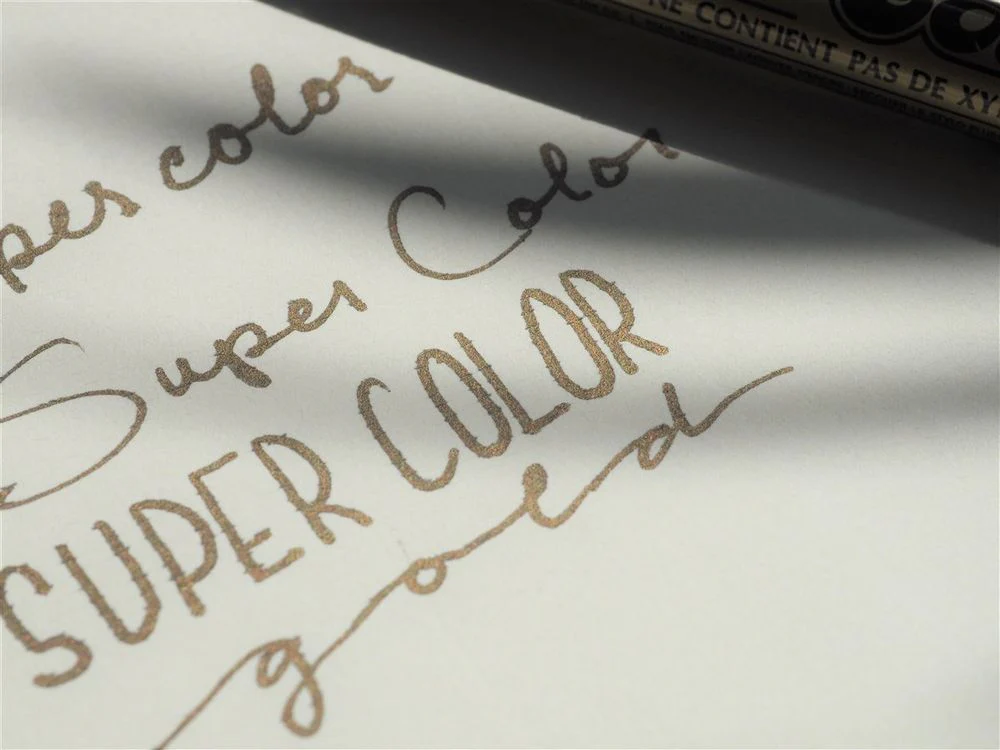 NE CONTIENT PAS DE XY
per color
Super Color
SUPER COLOR
gold